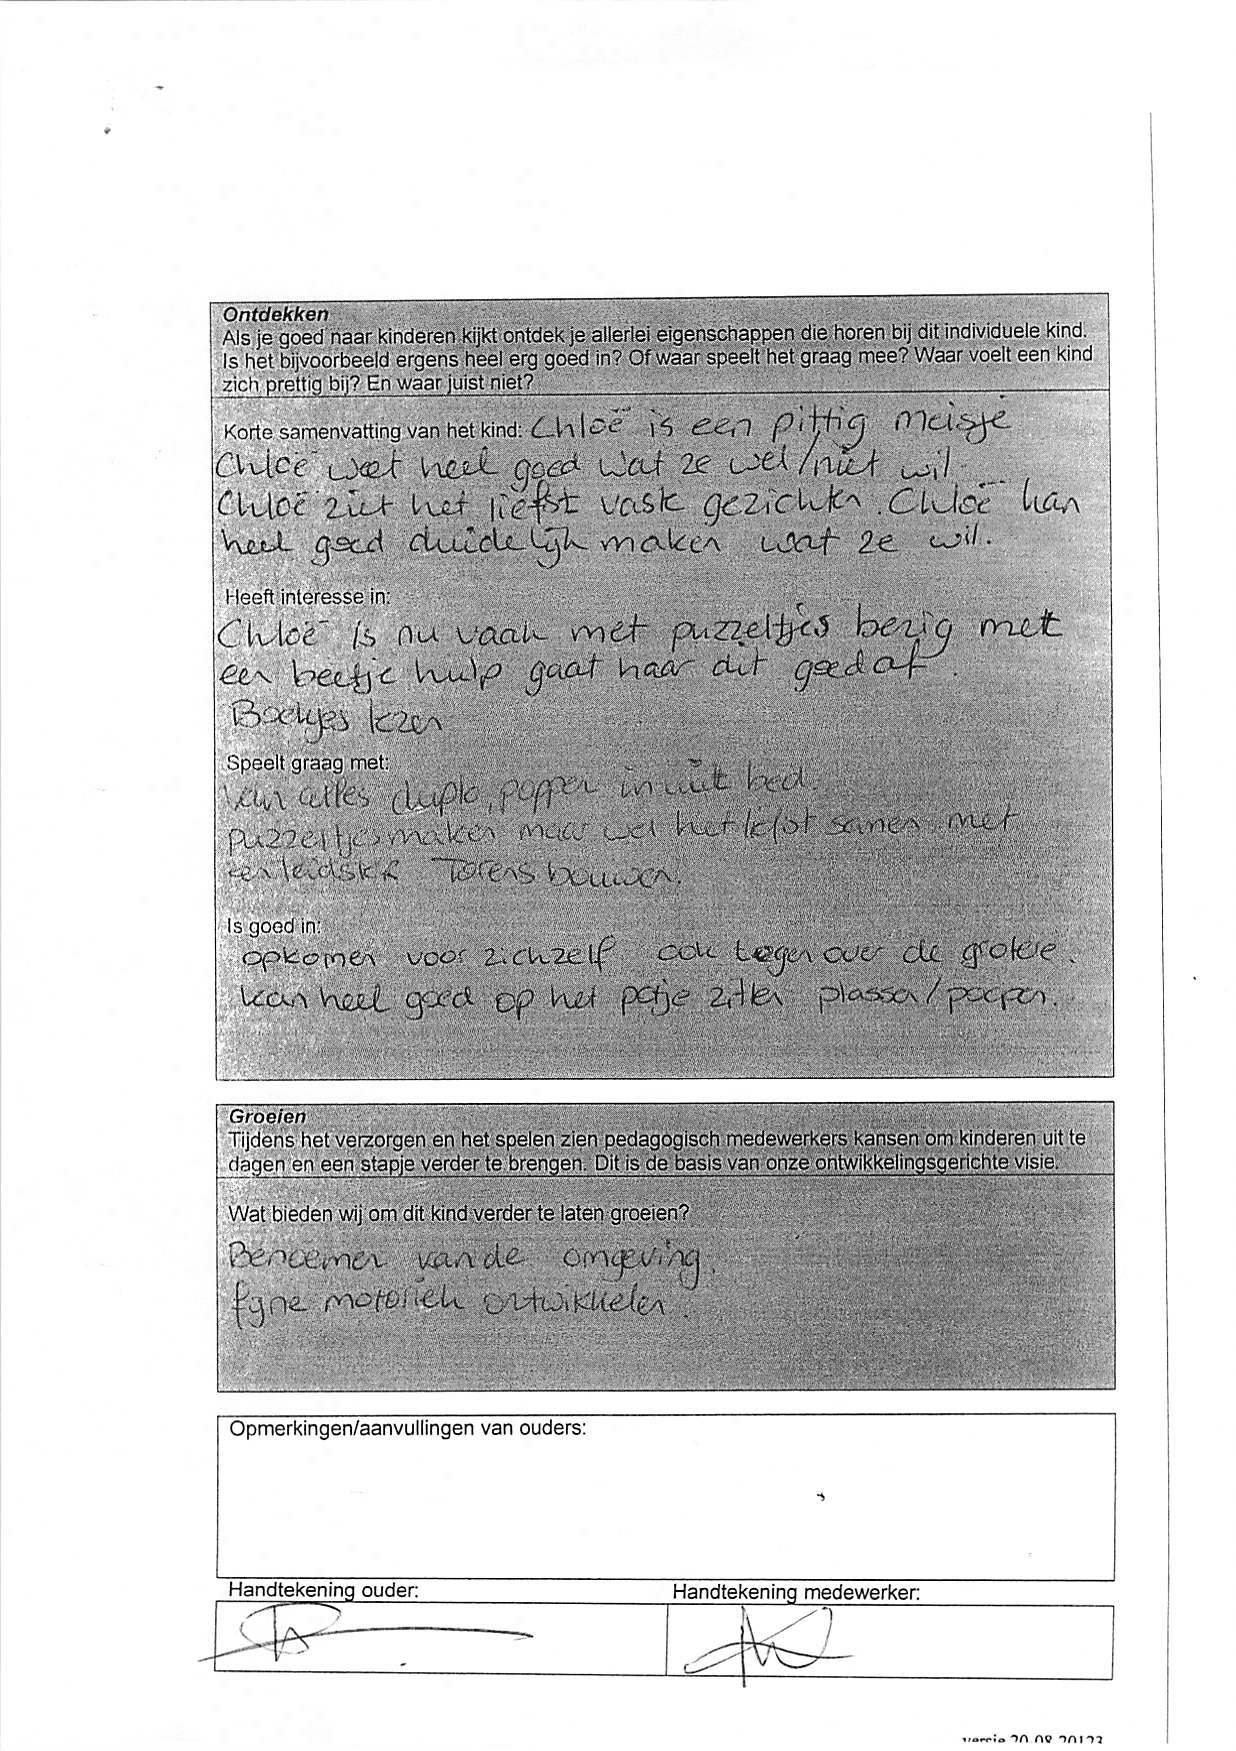 Ontdekken
Als je goed naar kinderen kijkt ontdek je allerlei eigenschappen die horen bij dit individuele kind.
Is het bijvoorbeeld ergens heel erg goed in? Of waar speelt het graag mee? Waar voelt een kind
zich prettig bij? En waar juist niet?
Korte samenvatting van het kind: Chloë is een pittig meisje
Chloë weet heel goed wat ze wel/niet wil.
Chloë ziet het liefst vaste gezichten. Chloë kan
heel goed duidelijk maken wat ze wil.
Heeft interesse in:
Chloë is nu vaak met puzzeltjes bezig met
een beetje hulp gaat haar dit goed af.
Boekjes lezen
Speelt graag met:
Van alles duplo, poppen in uit bed.
puzzeltjes maken maar wel het liefst samen met
een leidster Torens bouwen.
Is goed in:
opkomen voor zichzelf ook tegen over de grotere.
kan heel goed op het potje zitten plassen/poepen.
Groeien
Tijdens het verzorgen en het spelen zien pedagogisch medewerkers kansen om kinderen uit te
dagen en een stapje verder te brengen. Dit is de basis van onze ontwikkelingsgerichte visie.
Wat bieden wij om dit kind verder te laten groeien?
Benoemen van de omgeving.
fijne motoriek ontwikkelen.
Opmerkingen/aanvullingen van ouders:
Handtekening ouder: Handtekening medewerker:
versie 20.08.20123